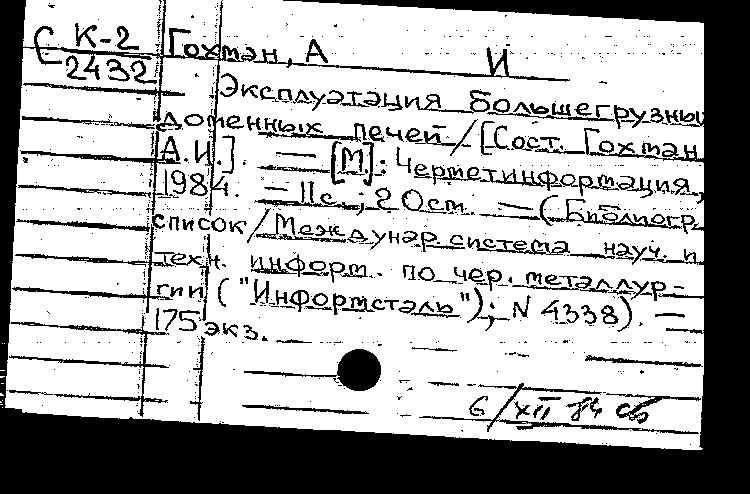 С К-2 Гохман, А И
2432
Эксплуатация большегрузны
доменных печей / [Сост. Гохман
А.И.]. — [М]: Черметинформация,
1984. — 11с.; 20см. — (Библиогр.
список / Междунар. система науч. и
техн. информ. по чер. металлур-
гии ("Информсталь"); N 4338). —
175 экз.
6/XII 84